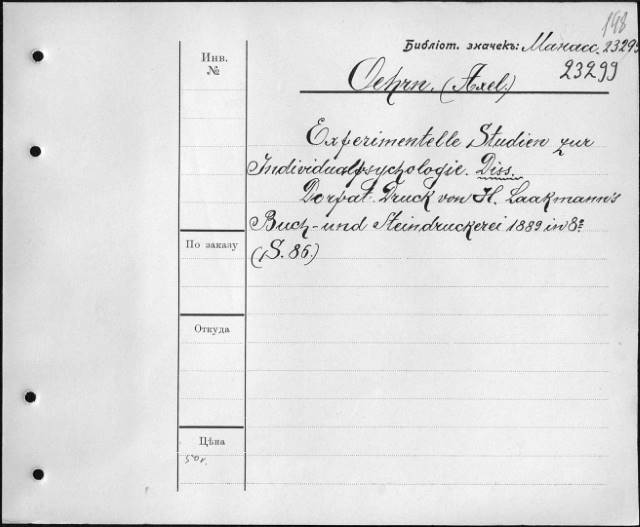 198
Библіот. значекъ: Манасс. 23299
23299
Oehrn. (Axel.)
Инв.
№
Experimentelle Studien zur
Individualpsychologie. Diss.
Dorpat. Druck von H. Laakmann's
Buch- und Steindruckerei 1889 in 8º
(S. 86.)
По заказу
Откуда
Цѣна
50 к.